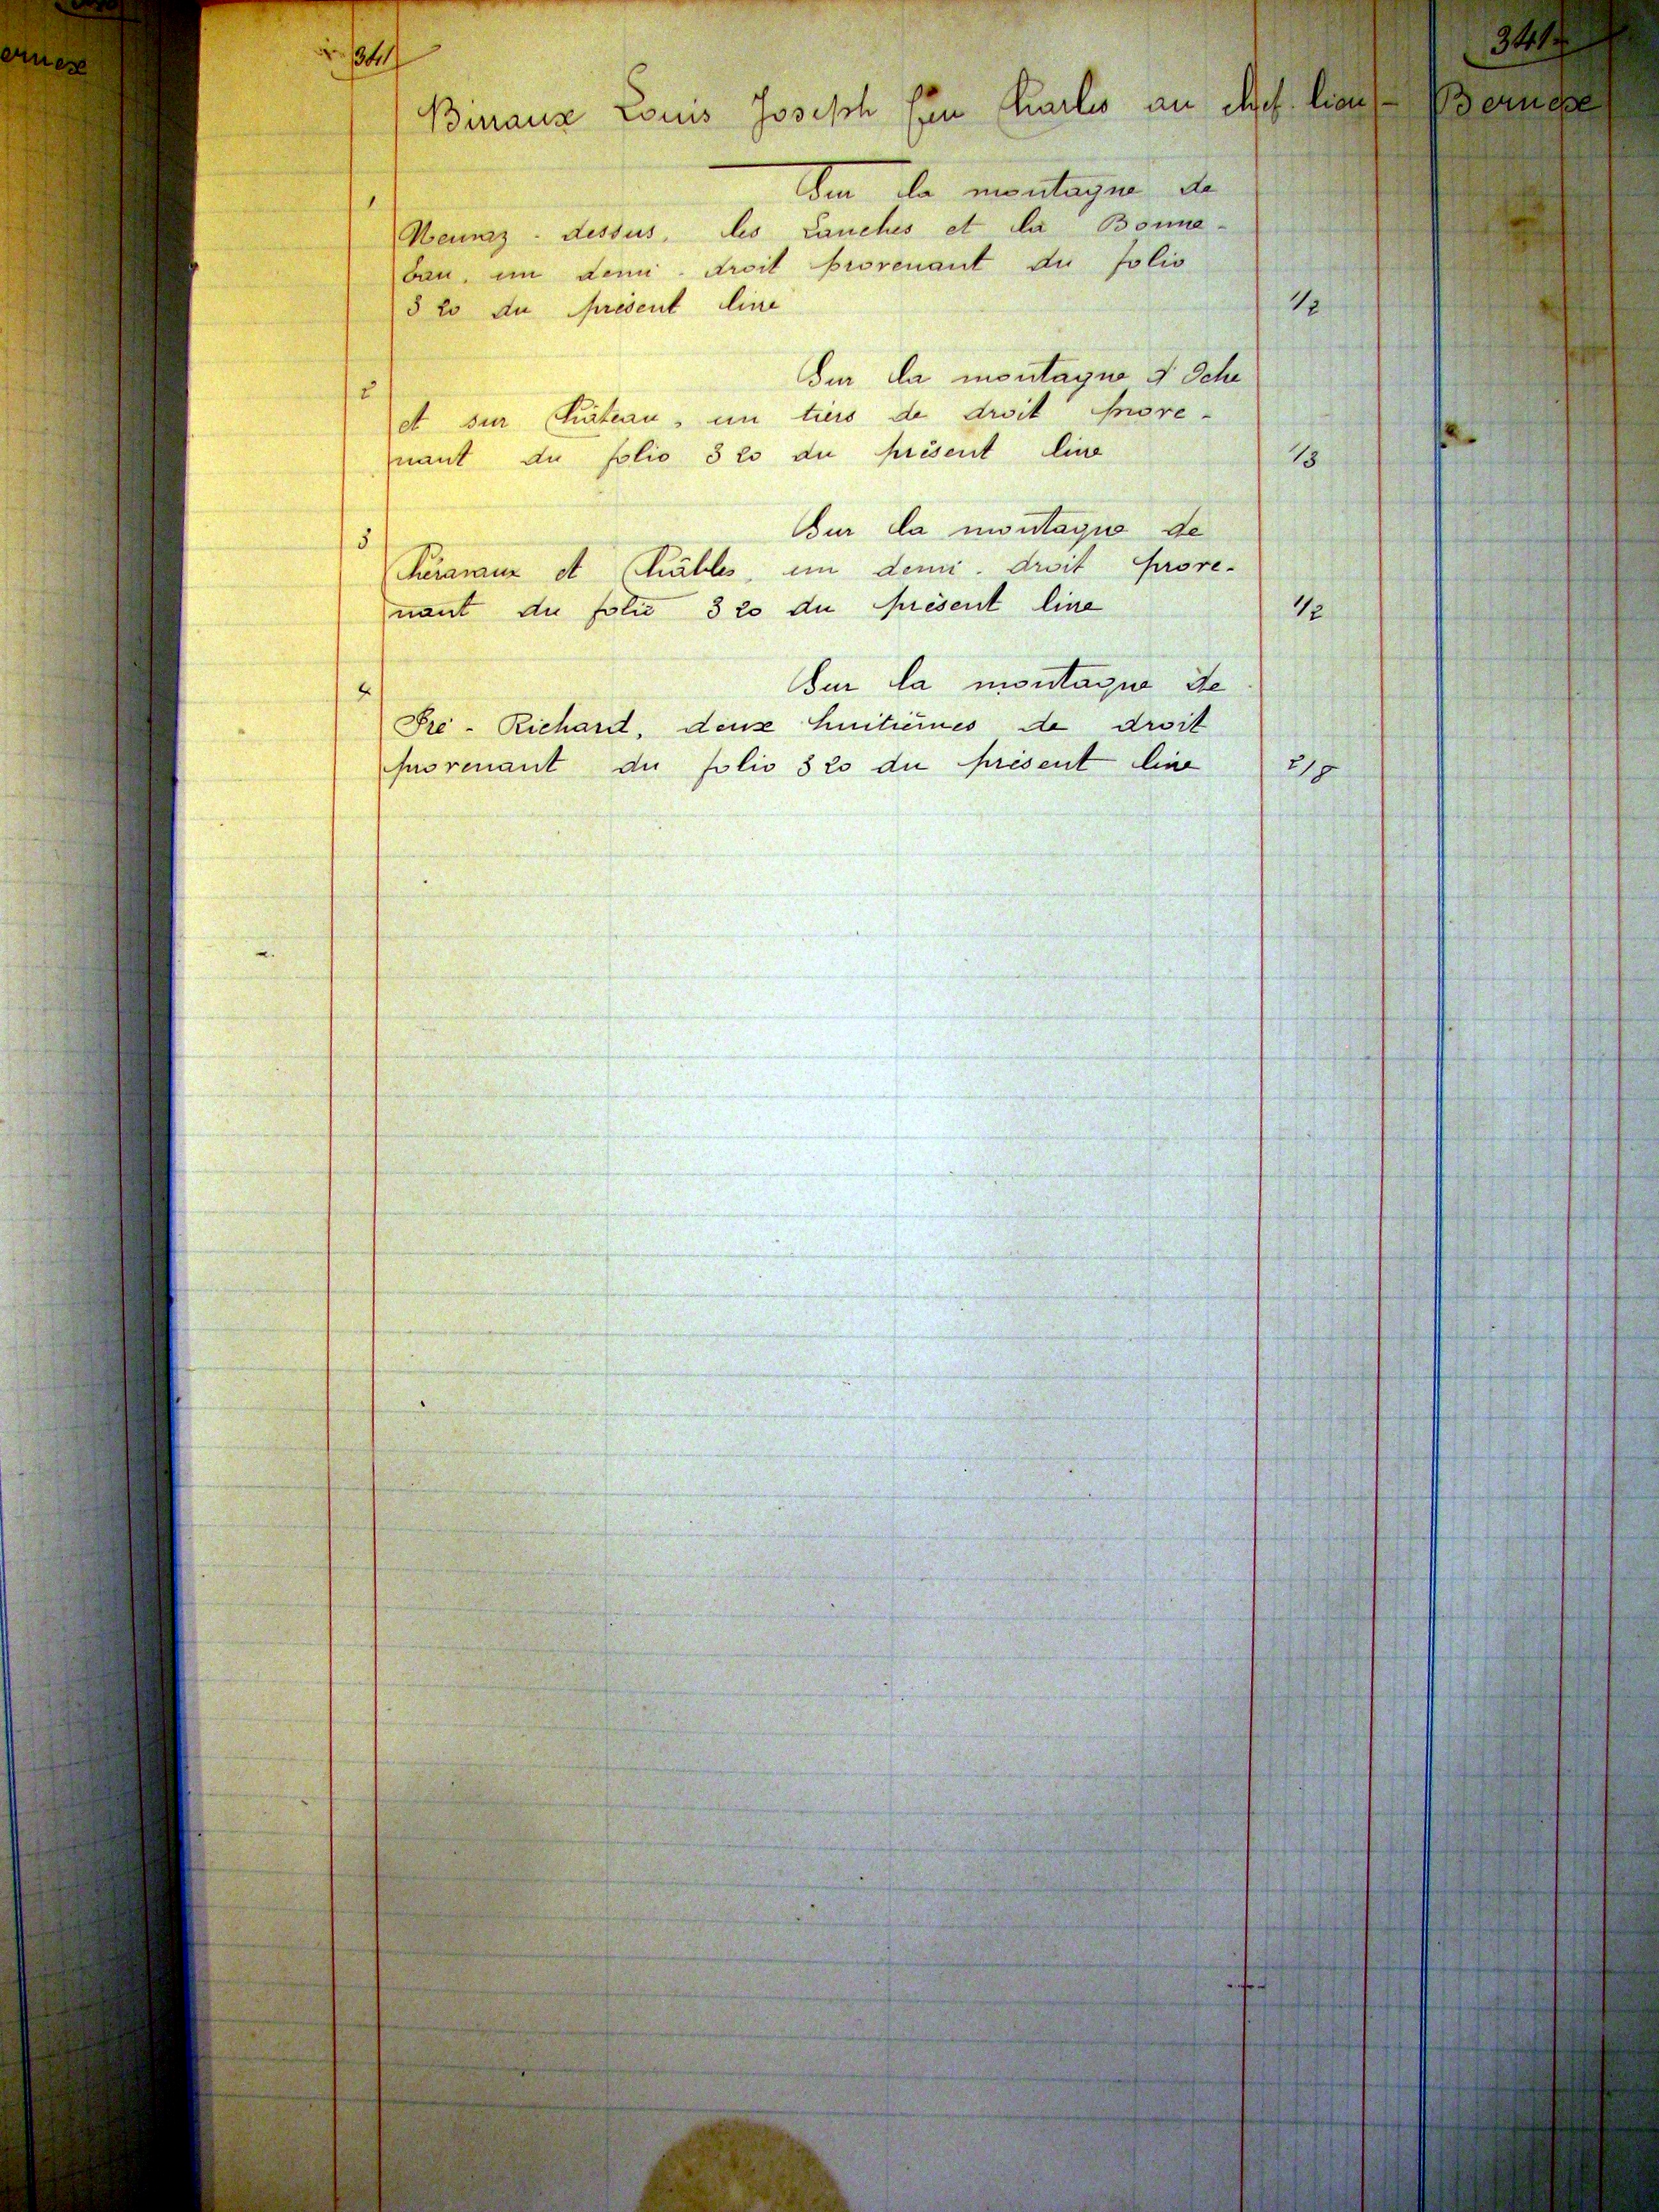 ernex
341
341
Birraux Louis Joseph feu Charles au chef-lieu - Bernex
1
Sur la montagne de
Neuvaz-dessus, les Lanches et la Bonne-
eau, un demi-droit provenant du folio
320 du présent livre 1/2
2
Sur la montagne d'Oche
et sur Château, un tiers de droit prove-
nant du folio 320 du présent livre 1/3
3
Sur la montagne de
et Châbles, un demi-droit prove-
nant du folio 320 du présent livre 1/2
4
Sur la montagne de
Pré-Richard, deux huitièmes de droit
provenant du folio 320 du présent livre 2/8